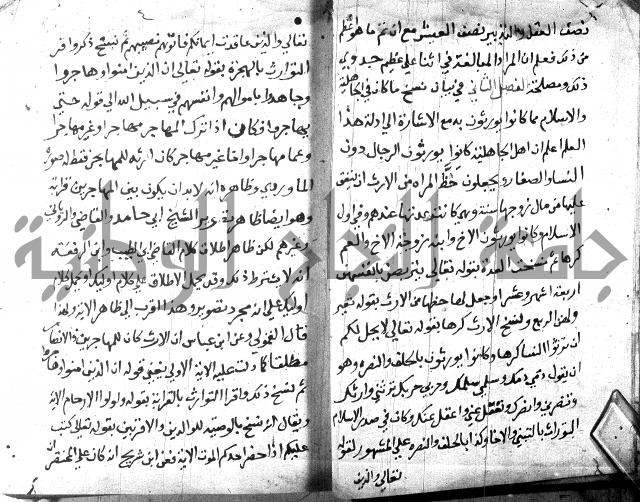 نصف العقل والتدبير نصف العيش مع ان ثم ما هو اعظم
من ذلك فعلم ان المراد المبالغة في اثنا على عظيم جدوى
ذلك ومصلحته الفصل الثاني في بيان نسخ ما كان في الجاهلية
والاسلام مما كانوا يورثون به مع الاشارة الي ادلة هذا
العلم اعلم ان اهل الجاهلية كانوا يورثون الرجال دون
النسا والصغار ويجعلون حظ المراه من الارث ان ينفق
عليها من مال زوجها سنة وهي كانت عدتها عندهم وفي اول
الاسلام وكانوا يورثون الاخ وابنه زوجة الاخ والعم
كرها ثم نسخت العدة بقوله تعالي يتربصن بانفسهن
اربعة اشهر وعشرا وجعل لها حقها من الارث بقوله تعالي
ولهن الربع ونسخ الارث كرها بقوله تعالي لا يحل لكم
ان ترثوا النسا كرها وكانوا يورثون بالحلف والنصره وهو
ان يقول دمي دمك وسلمي سلمك وحربي حربك ترثني وارثك
وتنصرني وانصرك وتعقل عني واعقل عنك وكان في صدر الاسلام
التوارث بالتبني والاخاوكذا بالحلف والنصره علي المشهور لقوله
تعالي والذين
٤
تعالي والذين عاقدت ايمانكم فاتوهم نصيبهم ثم نسخ ذلك وقر
التوارث بالهجرة بقوله تعالي ان الذين امنوا وهاجروا
وجاهدوا باموالهم وانفسهم في سبيل الله الي قوله حتي
يهاجروا فكان اذا ترك المهاجر مهاجرا وغير مهاجر
وعما مهاجرا واخا غير مهاجر كان ارثه للمهاجر فقط لصوره
الماوردي وظاهره انه لا بد ان يكون بين المهاجرين قرابة
وهو ايضا ظاهر تقرير الشيخ ابي حامد والقاضي والروياني
وغيرهم لكن ظاهر اطلاق كلام القاضي ابي الطيب وابن الرفعة
انه لا يشترط ذلك وقد يحمل الاطلاق في كلام اوليك ويحمل كلام
اوليك علي انه مجرد تصوير وهذا اقرب الي ظاهر الاية ولهذا
قال القمولي وعن ابن عباس ان الارث كان للمهاجرين والانصار
مطلقا كما دلت عليه الاية الاولي يعني قوله ان الذين امنوا وهاجروا
ثم نسخ ذلك واقر التوارث بالقرابة بقوله واولوا الارحام الاية
ويقال انه نسخ بالوصية للوالدين والاقربين بقوله تعالي كتب
عليكم اذا حضر احدكم الموت الاية فعن ابن شريح انه كان علي المحتضر
جامعة النجاح الوطنية